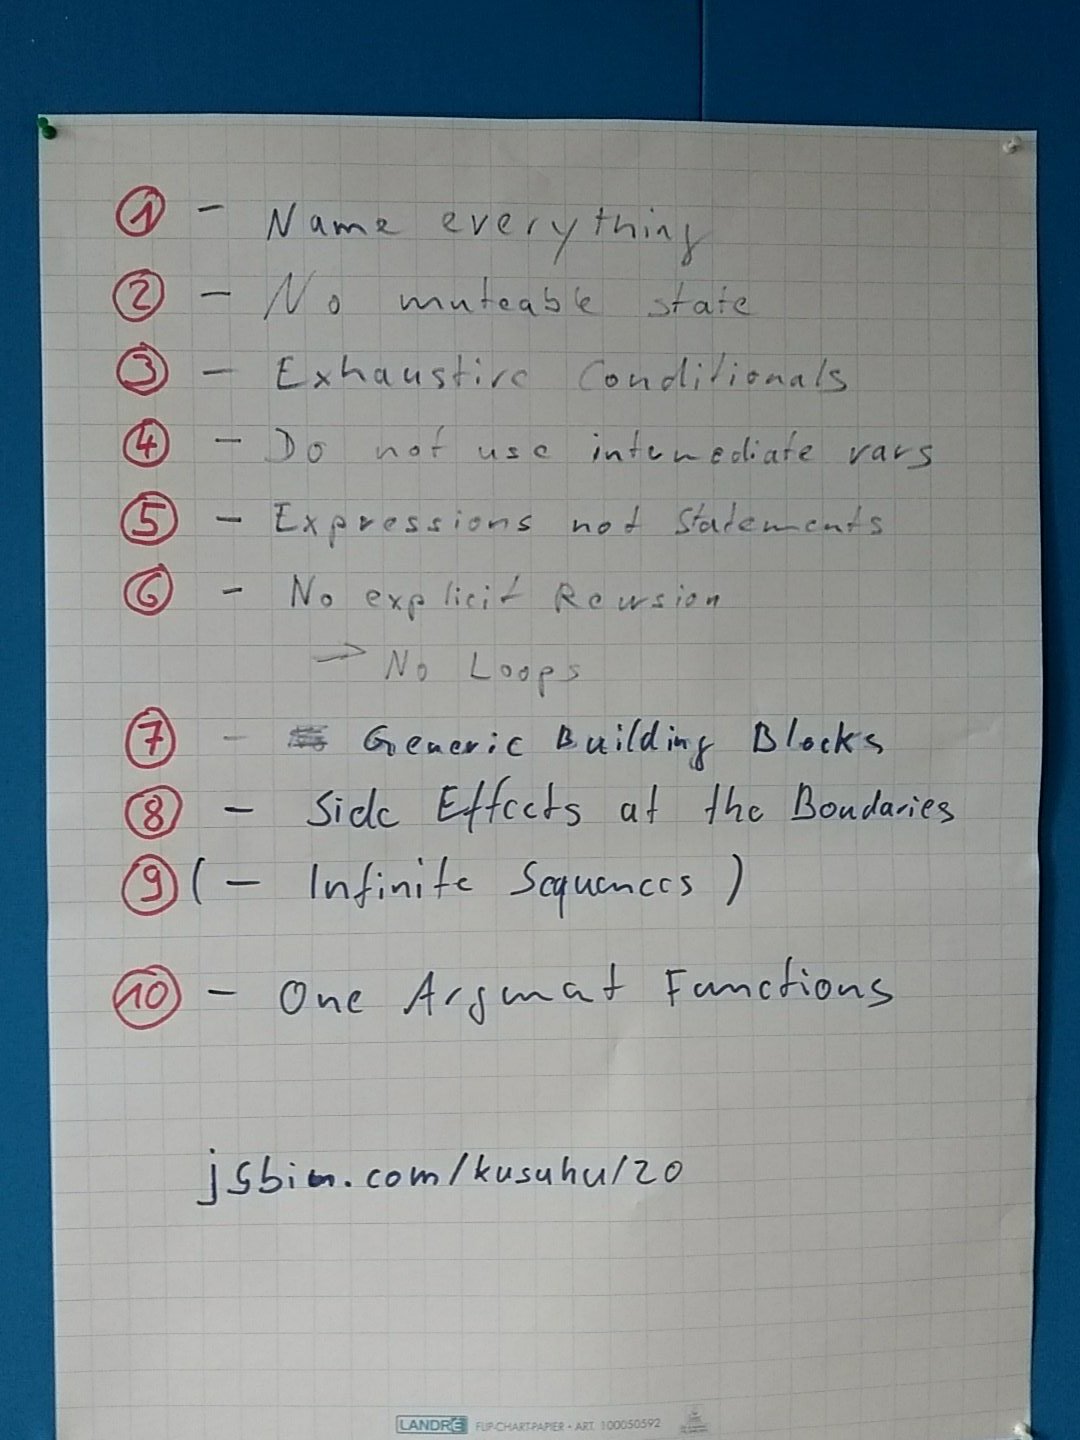 1 - Name everything
2 - No muteable state
3 - Exhaustive Conditionals
4 - Do not use intermediate vars
5 - Expressions not Statements
6 - No explicit Recursion
→ No Loops
7 - Generic Building Blocks
8 - Side Effects at the Boundaries
9 (- Infinite Sequences)
10 - One Argument Functions
jsbin.com/kusuhu/20
LANDRÉ FLIP-CHART-PAPIER • ART. 100050592